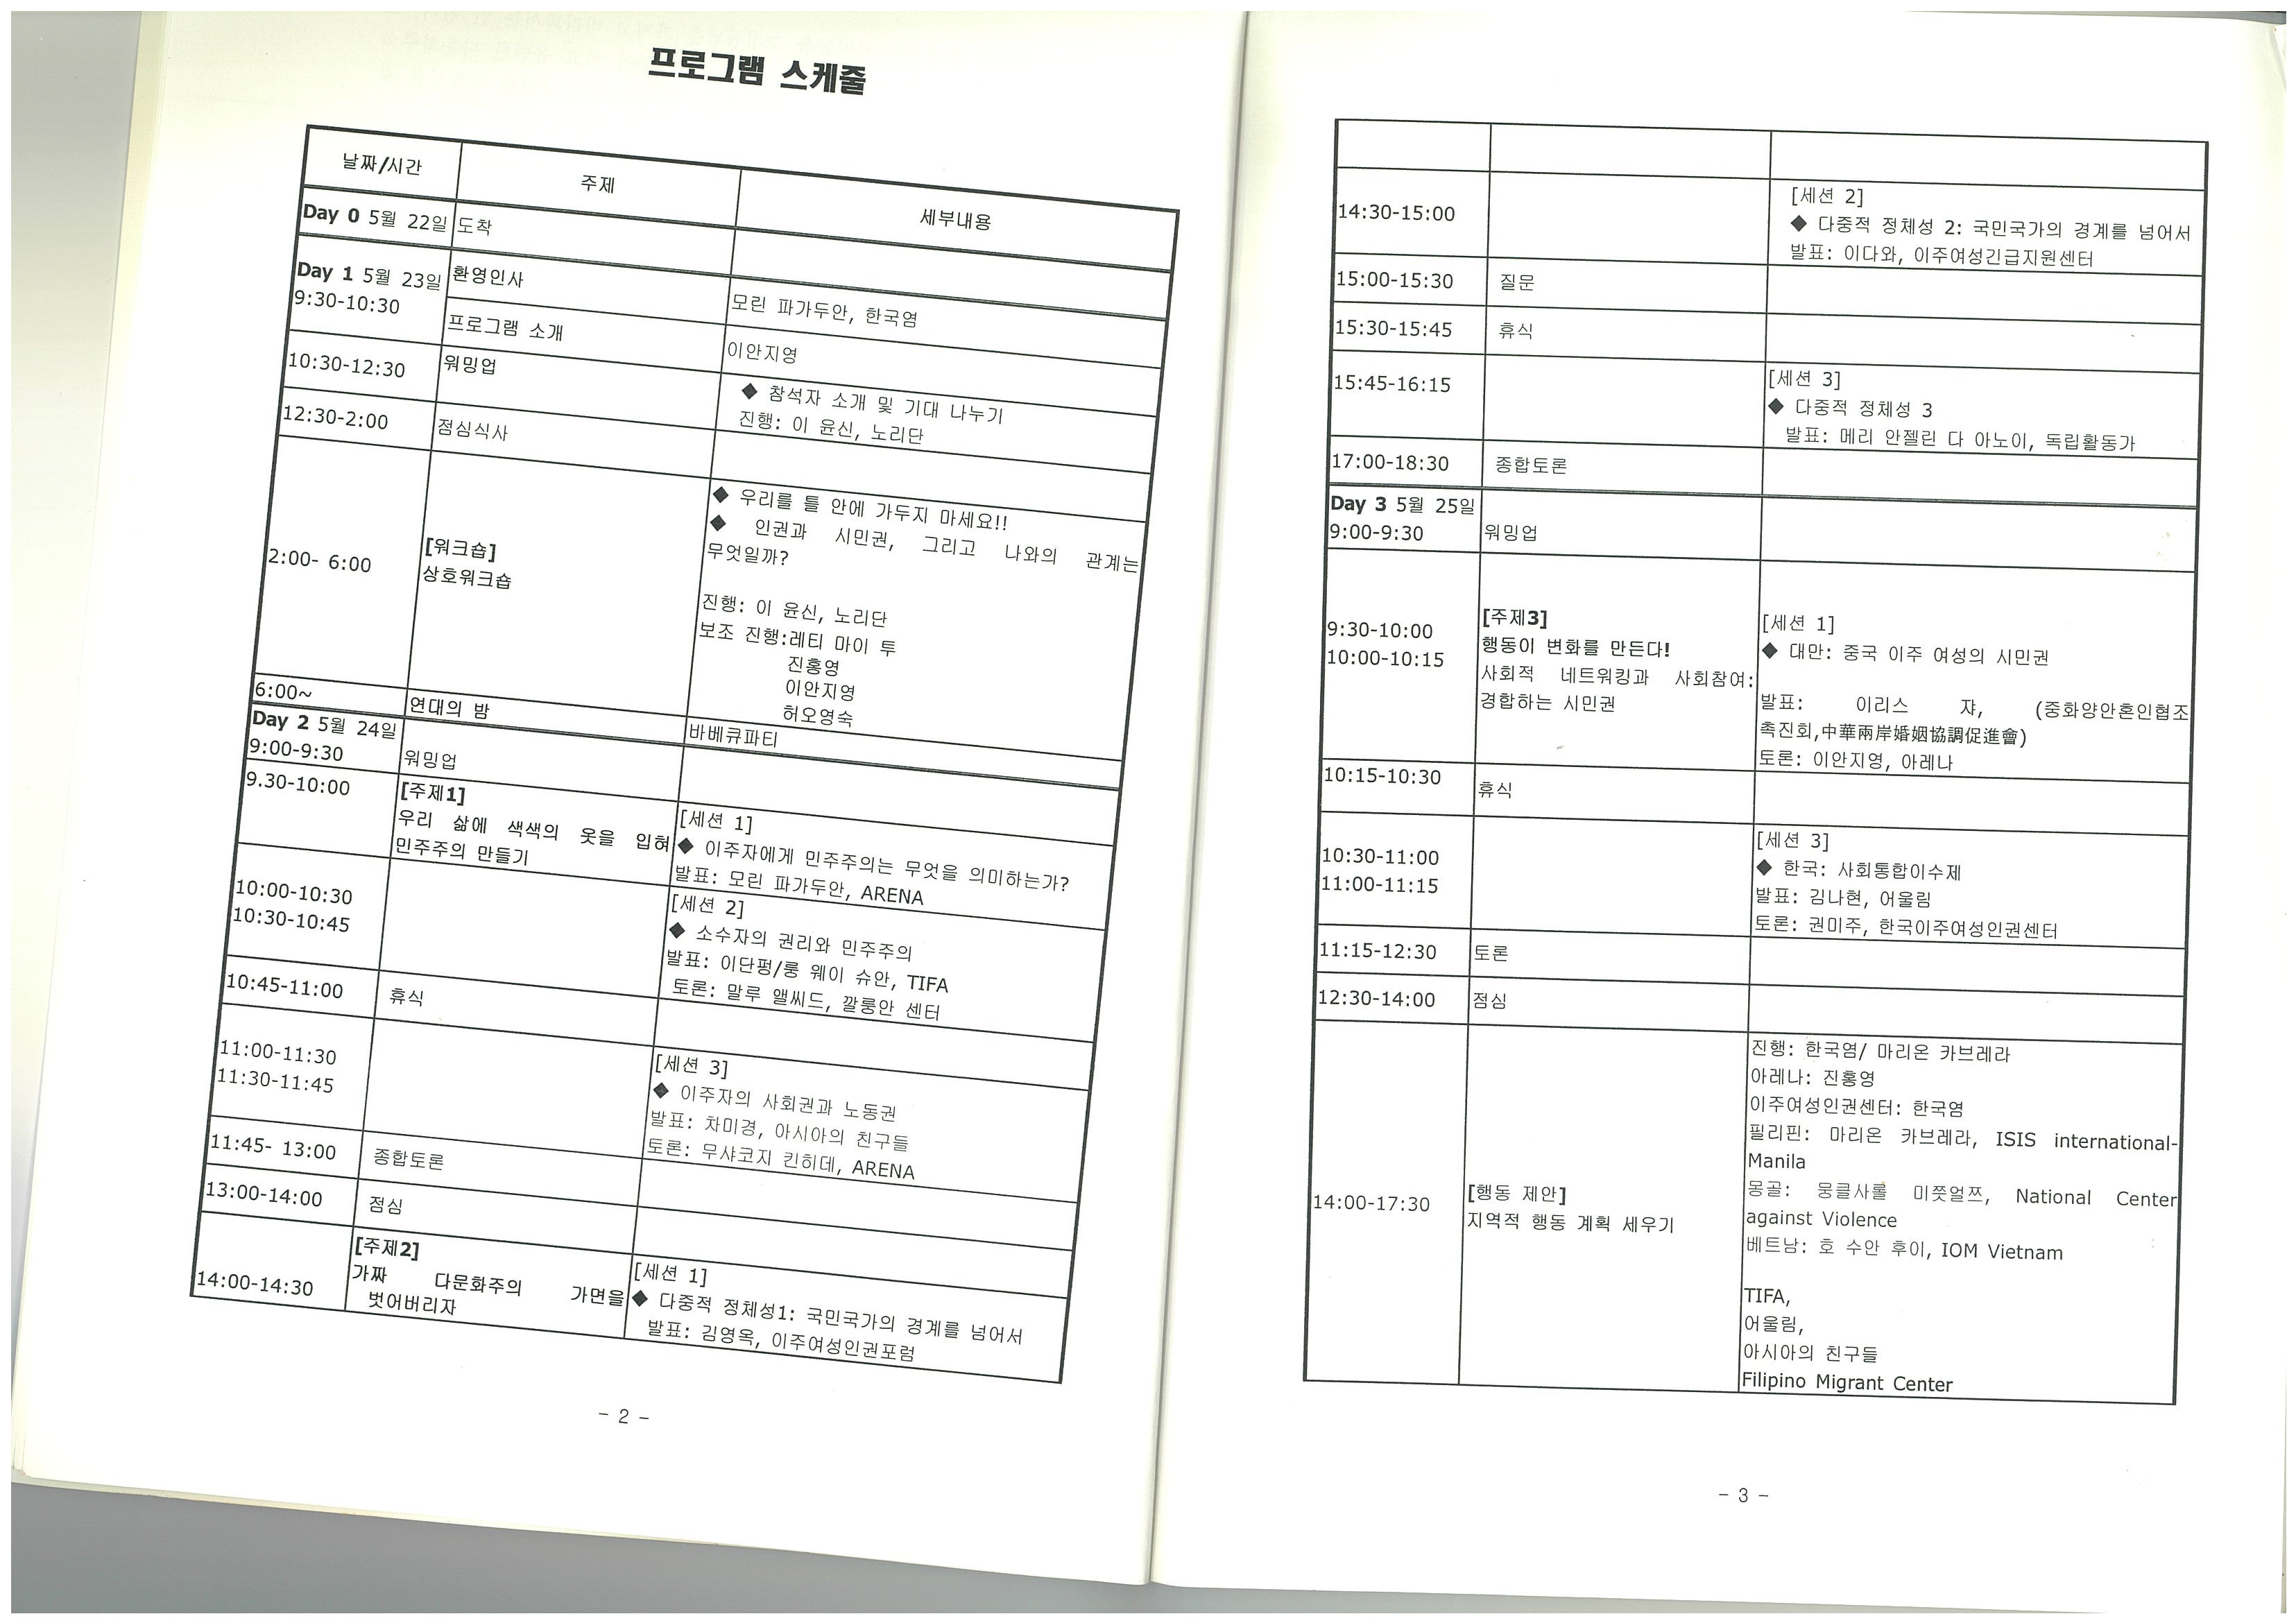 프로그램 스케줄
날짜/시간 주제 세부내용
Day 0 5월 22일 도착
Day 1 5월 23일
9:30-10:30
환영인사 모린 파가두안, 한국염
프로그램 소개 이안지영
10:30-12:30 워밍업
◆ 참석자 소개 및 기대 나누기
진행: 이 윤신, 노리단
12:30-2:00 점심식사
2:00- 6:00
[워크숍]
상호워크숍
◆ 우리를 틀 안에 가두지 마세요!!
◆ 인권과 시민권, 그리고 나와의 관계는
무엇일까?
진행: 이 윤신, 노리단
보조 진행:레티 마이 투
진홍영
이안지영
허오영숙
6:00~ 연대의 밤 바베큐파티
Day 2 5월 24일
9:00-9:30 워밍업
9.30-10:00
[주제1]
우리 삶에 색색의 옷을 입혀
민주주의 만들기
[세션 1]
◆ 이주자에게 민주주의는 무엇을 의미하는가?
발표: 모린 파가두안, ARENA
10:00-10:30
10:30-10:45
[세션 2]
◆ 소수자의 권리와 민주주의
발표: 이단평/룽 웨이 슈안, TIFA
토론: 말루 앨씨드, 깔룽안 센터
10:45-11:00 휴식
11:00-11:30
11:30-11:45
[세션 3]
◆ 이주자의 사회권과 노동권
발표: 차미경, 아시아의 친구들
토론: 무샤코지 킨히데, ARENA
11:45- 13:00 종합토론
13:00-14:00 점심
14:00-14:30
[주제2]
가짜 다문화주의 가면을
벗어버리자
[세션 1]
◆ 다중적 정체성1: 국민국가의 경계를 넘어서
발표: 김영옥, 이주여성인권포럼
- 2 -
14:30-15:00
[세션 2]
◆ 다중적 정체성 2: 국민국가의 경계를 넘어서
발표: 이다와, 이주여성긴급지원센터
15:00-15:30 질문
15:30-15:45 휴식
15:45-16:15
[세션 3]
◆ 다중적 정체성 3
발표: 메리 안젤린 다 아노이, 독립활동가
17:00-18:30 종합토론
Day 3 5월 25일
9:00-9:30 워밍업
9:30-10:00
10:00-10:15
[주제3]
행동이 변화를 만든다!
사회적 네트워킹과 사회참여:
경합하는 시민권
[세션 1]
◆ 대만: 중국 이주 여성의 시민권
발표: 이리스 쟈, (중화양안혼인협조
촉진회,中華兩岸婚姻協調促進會)
토론: 이안지영, 아레나
10:15-10:30 휴식
10:30-11:00
11:00-11:15
[세션 3]
◆ 한국: 사회통합이수제
발표: 김나현, 어울림
토론: 권미주, 한국이주여성인권센터
11:15-12:30 토론
12:30-14:00 점심
14:00-17:30
[행동 제안]
지역적 행동 계획 세우기
진행: 한국염/ 마리온 카브레라
아레나: 진홍영
이주여성인권센터: 한국염
필리핀: 마리온 카브레라, ISIS international-
Manila
몽골: 뭉글사롤 미쯧얼쯔, National Center
against Violence
베트남: 호 수안 후이, IOM Vietnam
TIFA,
어울림,
아시아의 친구들
Filipino Migrant Center
- 3 -